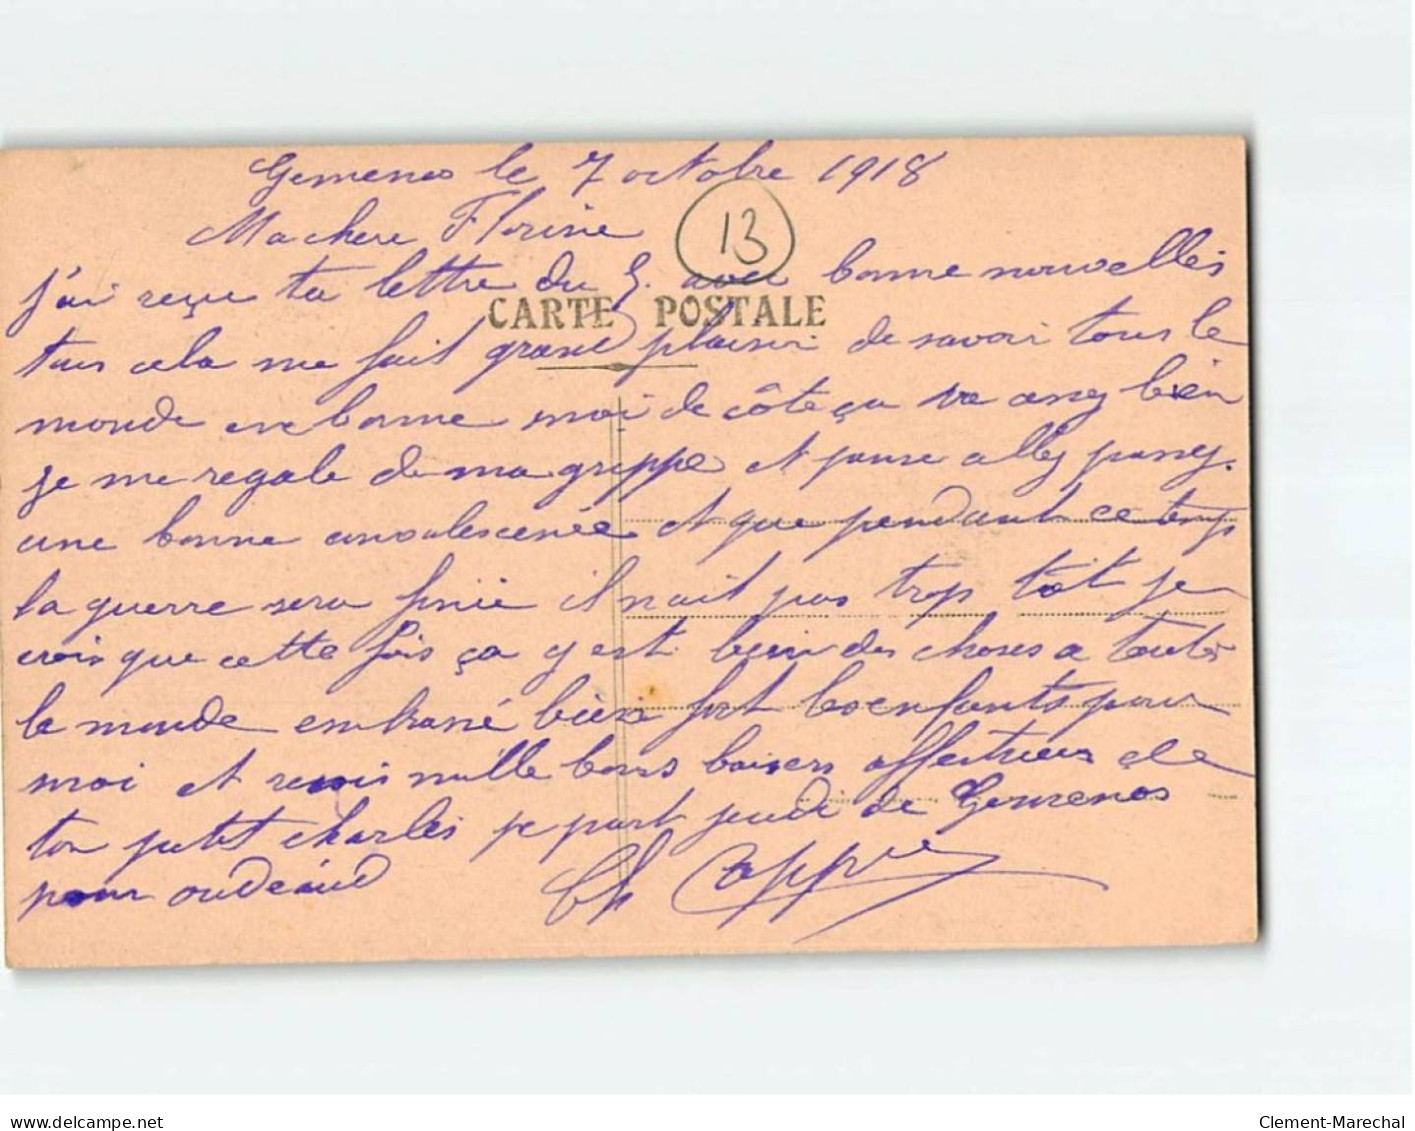 Gemenos le 7 octobre 1918
Ma chere Florine
13
j'ai reçu ta lettre du 5. avec bonne nouvelles
CARTE POSTALE
tous cela me fait grand plaisir de savoir tous le
monde en bonne moi de côte ça va assez bien
je me regale de ma grippe et pense allez passez
une bonne convalescence et que pendant ce temps
la guerre sera finie il nait pas trop tôt je
crois que cette fois ça y est bien des choses a touts
le monde embrassé bien fort les enfants pour
moi et reçois mille bons baisers affectueux de
ton petit charles je part jeudi de Gemenos
pour
Ch Cappe
Clement-Marechal
delcampe.net